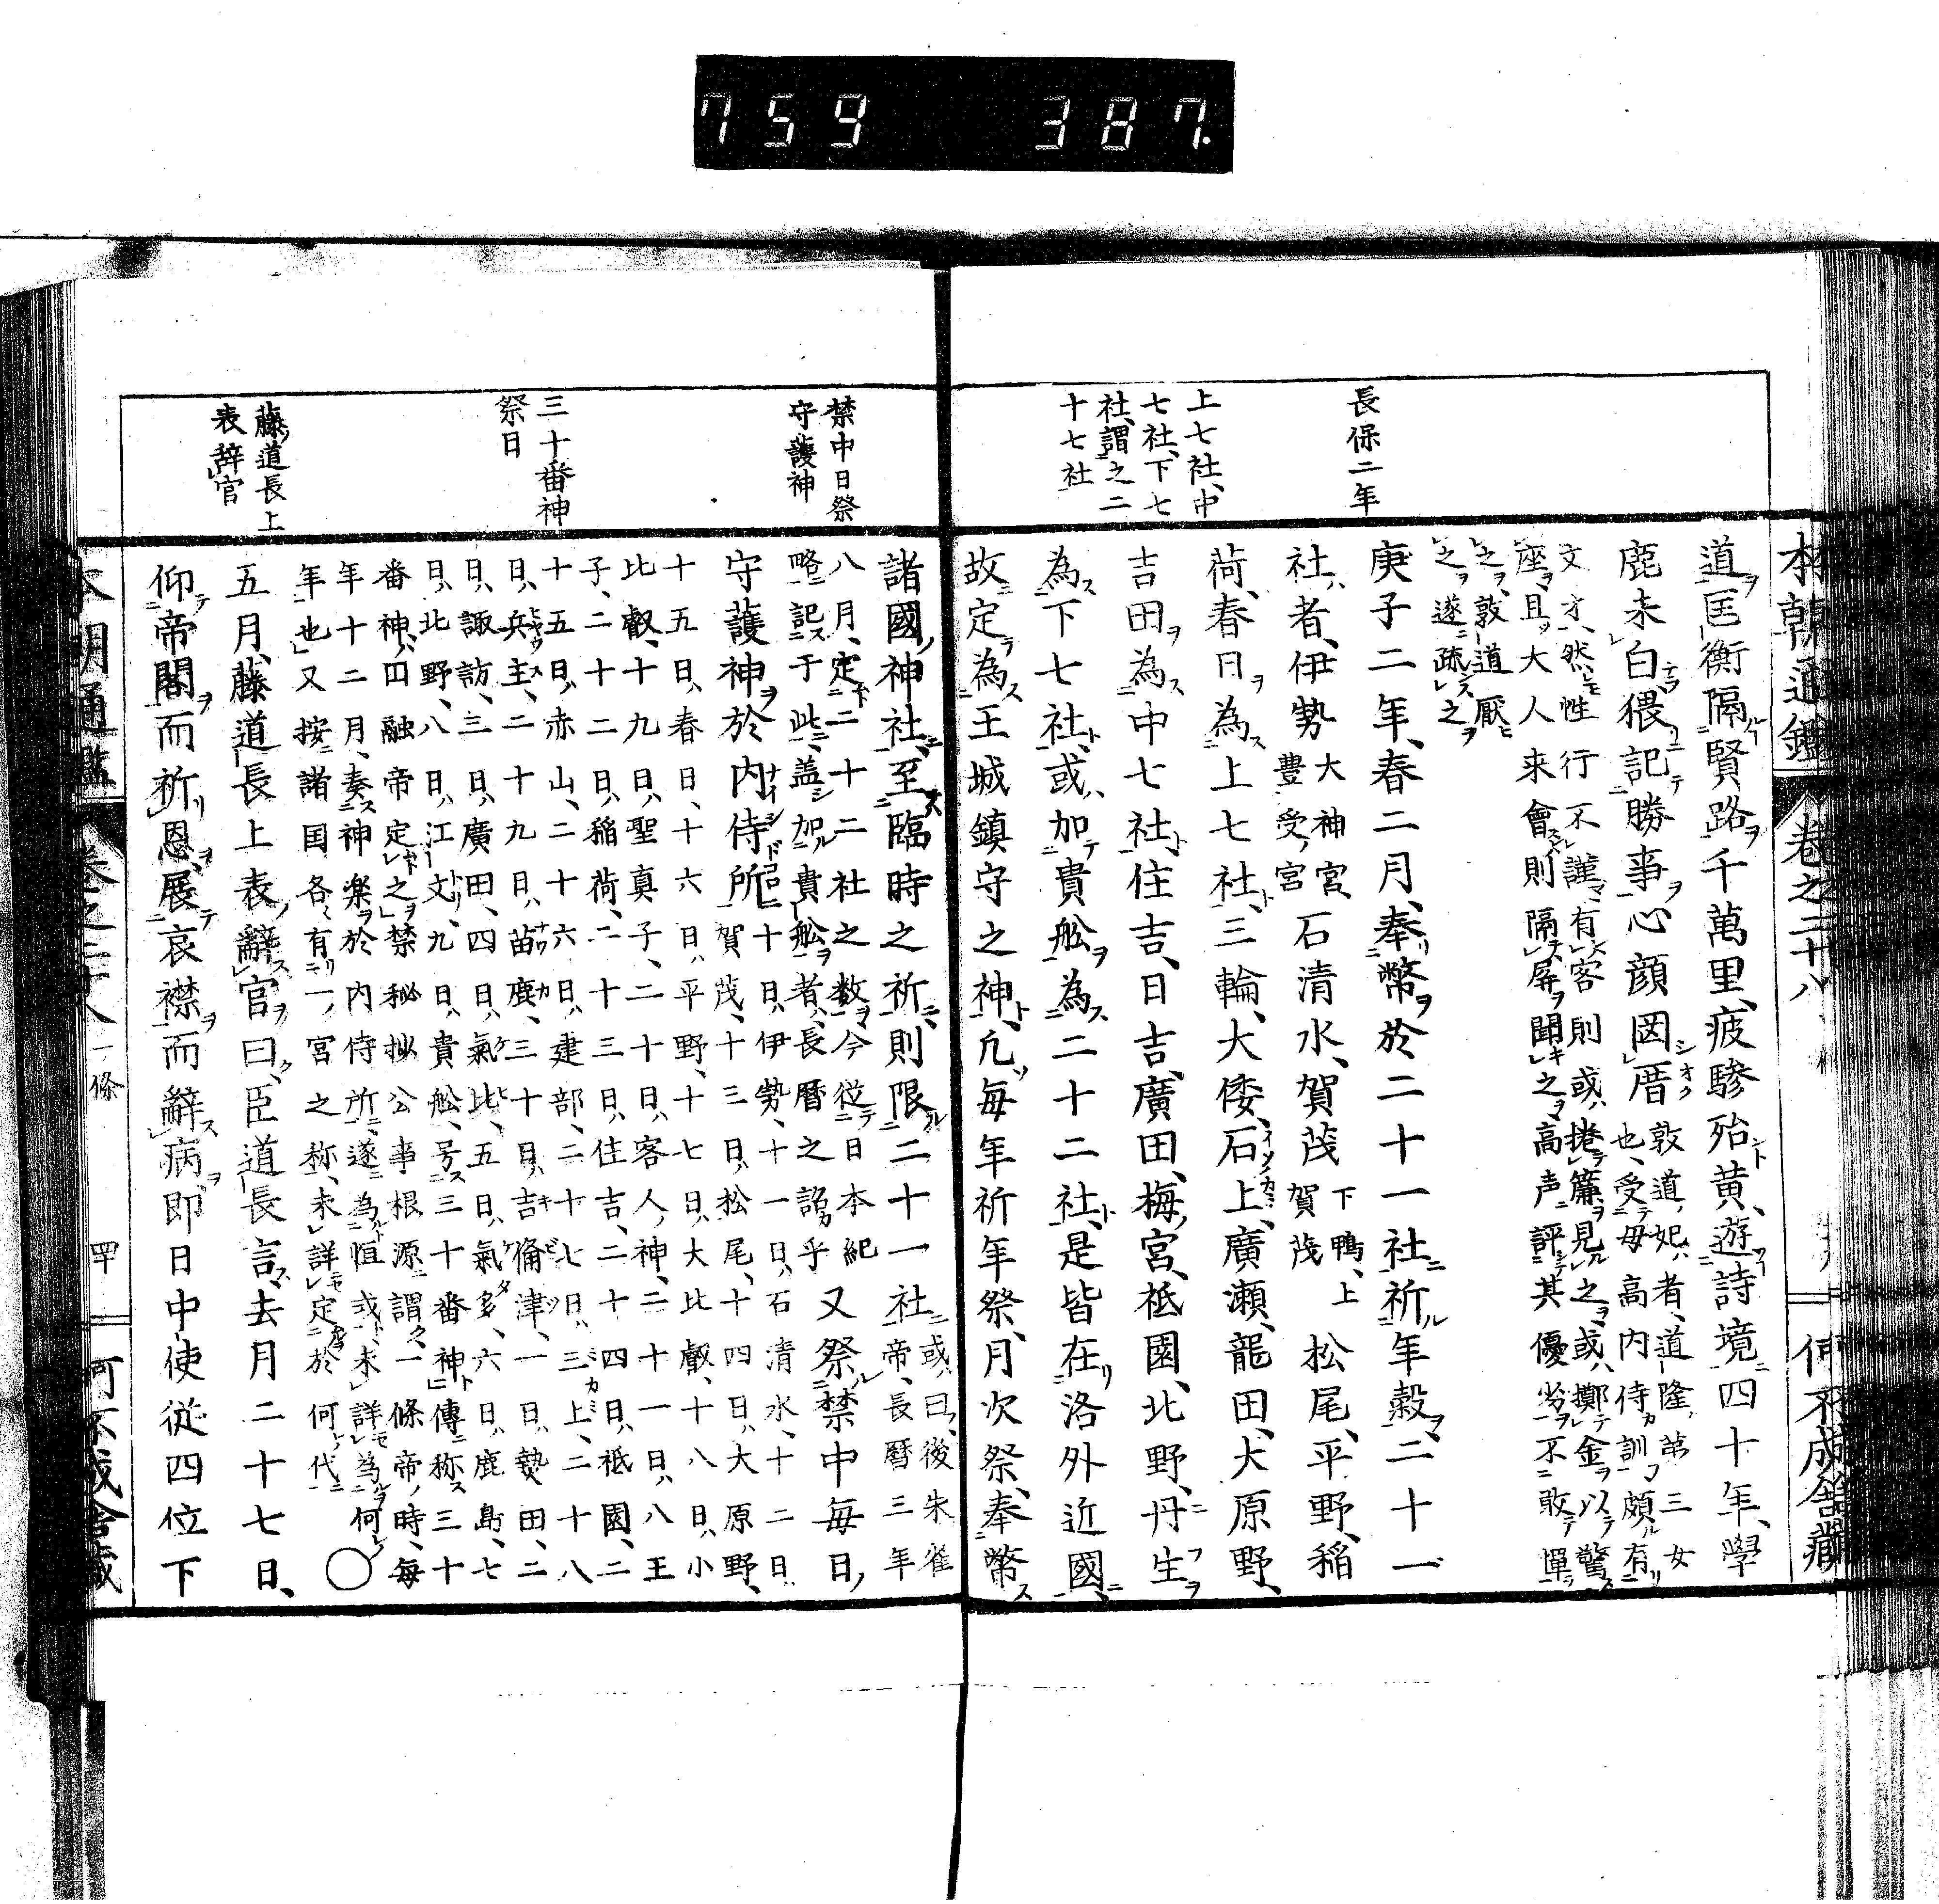 759 387.
長保二年
上七社、中
七社、下七
社、謂之二
十七社
道匡衡隔賢路千萬里、疲驂殆黄、遊詩境四十年、學
鹿未白猥記勝事心顔罔厝
敦道妃者、道隆第三女
也、受母高内侍訓頗有
文才、然性行不謹、有客則或捲簾見之、或擲金以驚
座、且大人来會則隔屏聞之高声評其優劣不敢憚
之、敦道厭
之遂疏之
庚子二年、春二月、奉幣於二十一社祈年穀、二十一
社者、伊勢
大神宮
豊受宮
石清水、賀茂
下鴨、上
賀茂
松尾、平野、稲
荷、春日為上七社、三輪、大倭、石上、廣瀬、龍田、大原野、
吉田為中七社、住吉、日吉、廣田、梅宮、祗園、北野、丹生
為下七社、或加貴舩為二十二社、是皆在洛外近國、
故定為王城鎮守之神、凢毎年祈年祭、月次祭、奉幣
禁中日祭
守護神
三十番神
祭日
藤道長上
表辞官
諸國神社、至臨時之祈、則限二十一社
或曰、後朱雀
帝、長暦三年
八月、定二十二社之数今從日本紀
略記于此、盖加貴舩者、長暦之詔乎
又祭禁中毎日
守護神於内侍所
十日、伊勢、十一日、石清水、十二日、
賀茂、十三日、松尾、十四日、大原野、
十五日、春日、十六日、平野、十七日、大比叡、十八日、小
比叡、十九日、聖真子、二十日、客人神、二十一日、八王
子、二十二日、稲荷、二十三日、住吉、二十四日、祗園、二
十五日、赤山、二十六日、建部、二十七日、三上、二十八
日、兵主、二十九日、苗鹿、三十日、吉備津、一日、熱田、二
日、諏訪、三日、廣田、四日、氣比、五日、氣多、六日、鹿島、七
日、北野、八日、江文、九日、貴舩、号三十番神、傳称三十
番神、円融帝定之、禁秘抄公事根源謂、一條帝時、毎
年十二月、奏神楽於内侍所、遂為恒或未詳為何
年也、又按諸国各有一宮之称、未詳定於何代
○
五月、藤道長上表辭官曰、臣道長言、去月二十七日、
仰帝閣而祈恩、展哀襟而辭病即日中使従四位下